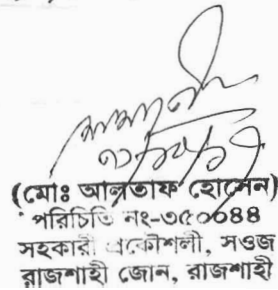 (মোঃ আলতাফ হোসেন)
পরিচিতি নং-৩৫০৬৪৪
সহকারী প্রকৌশলী, সওজ
রাজশাহী জোন, রাজশাহী